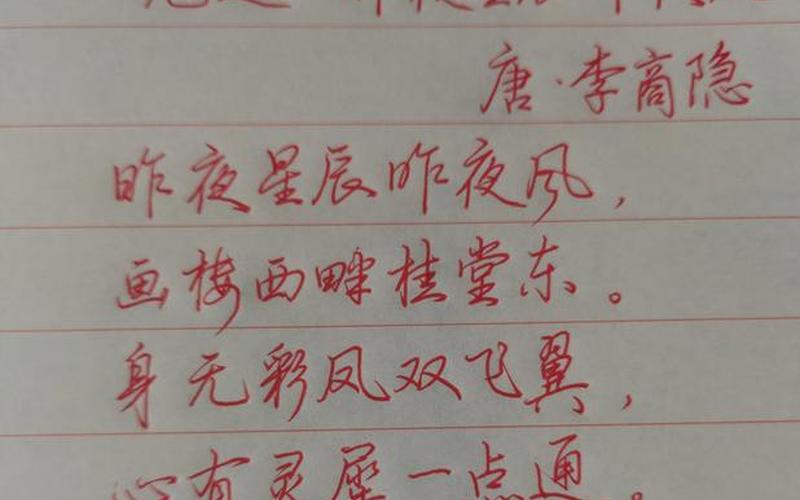 唐·李商隐
昨夜星辰昨夜风，
画楼西畔桂堂东。
身无彩凤双飞翼，
心有灵犀一点通。